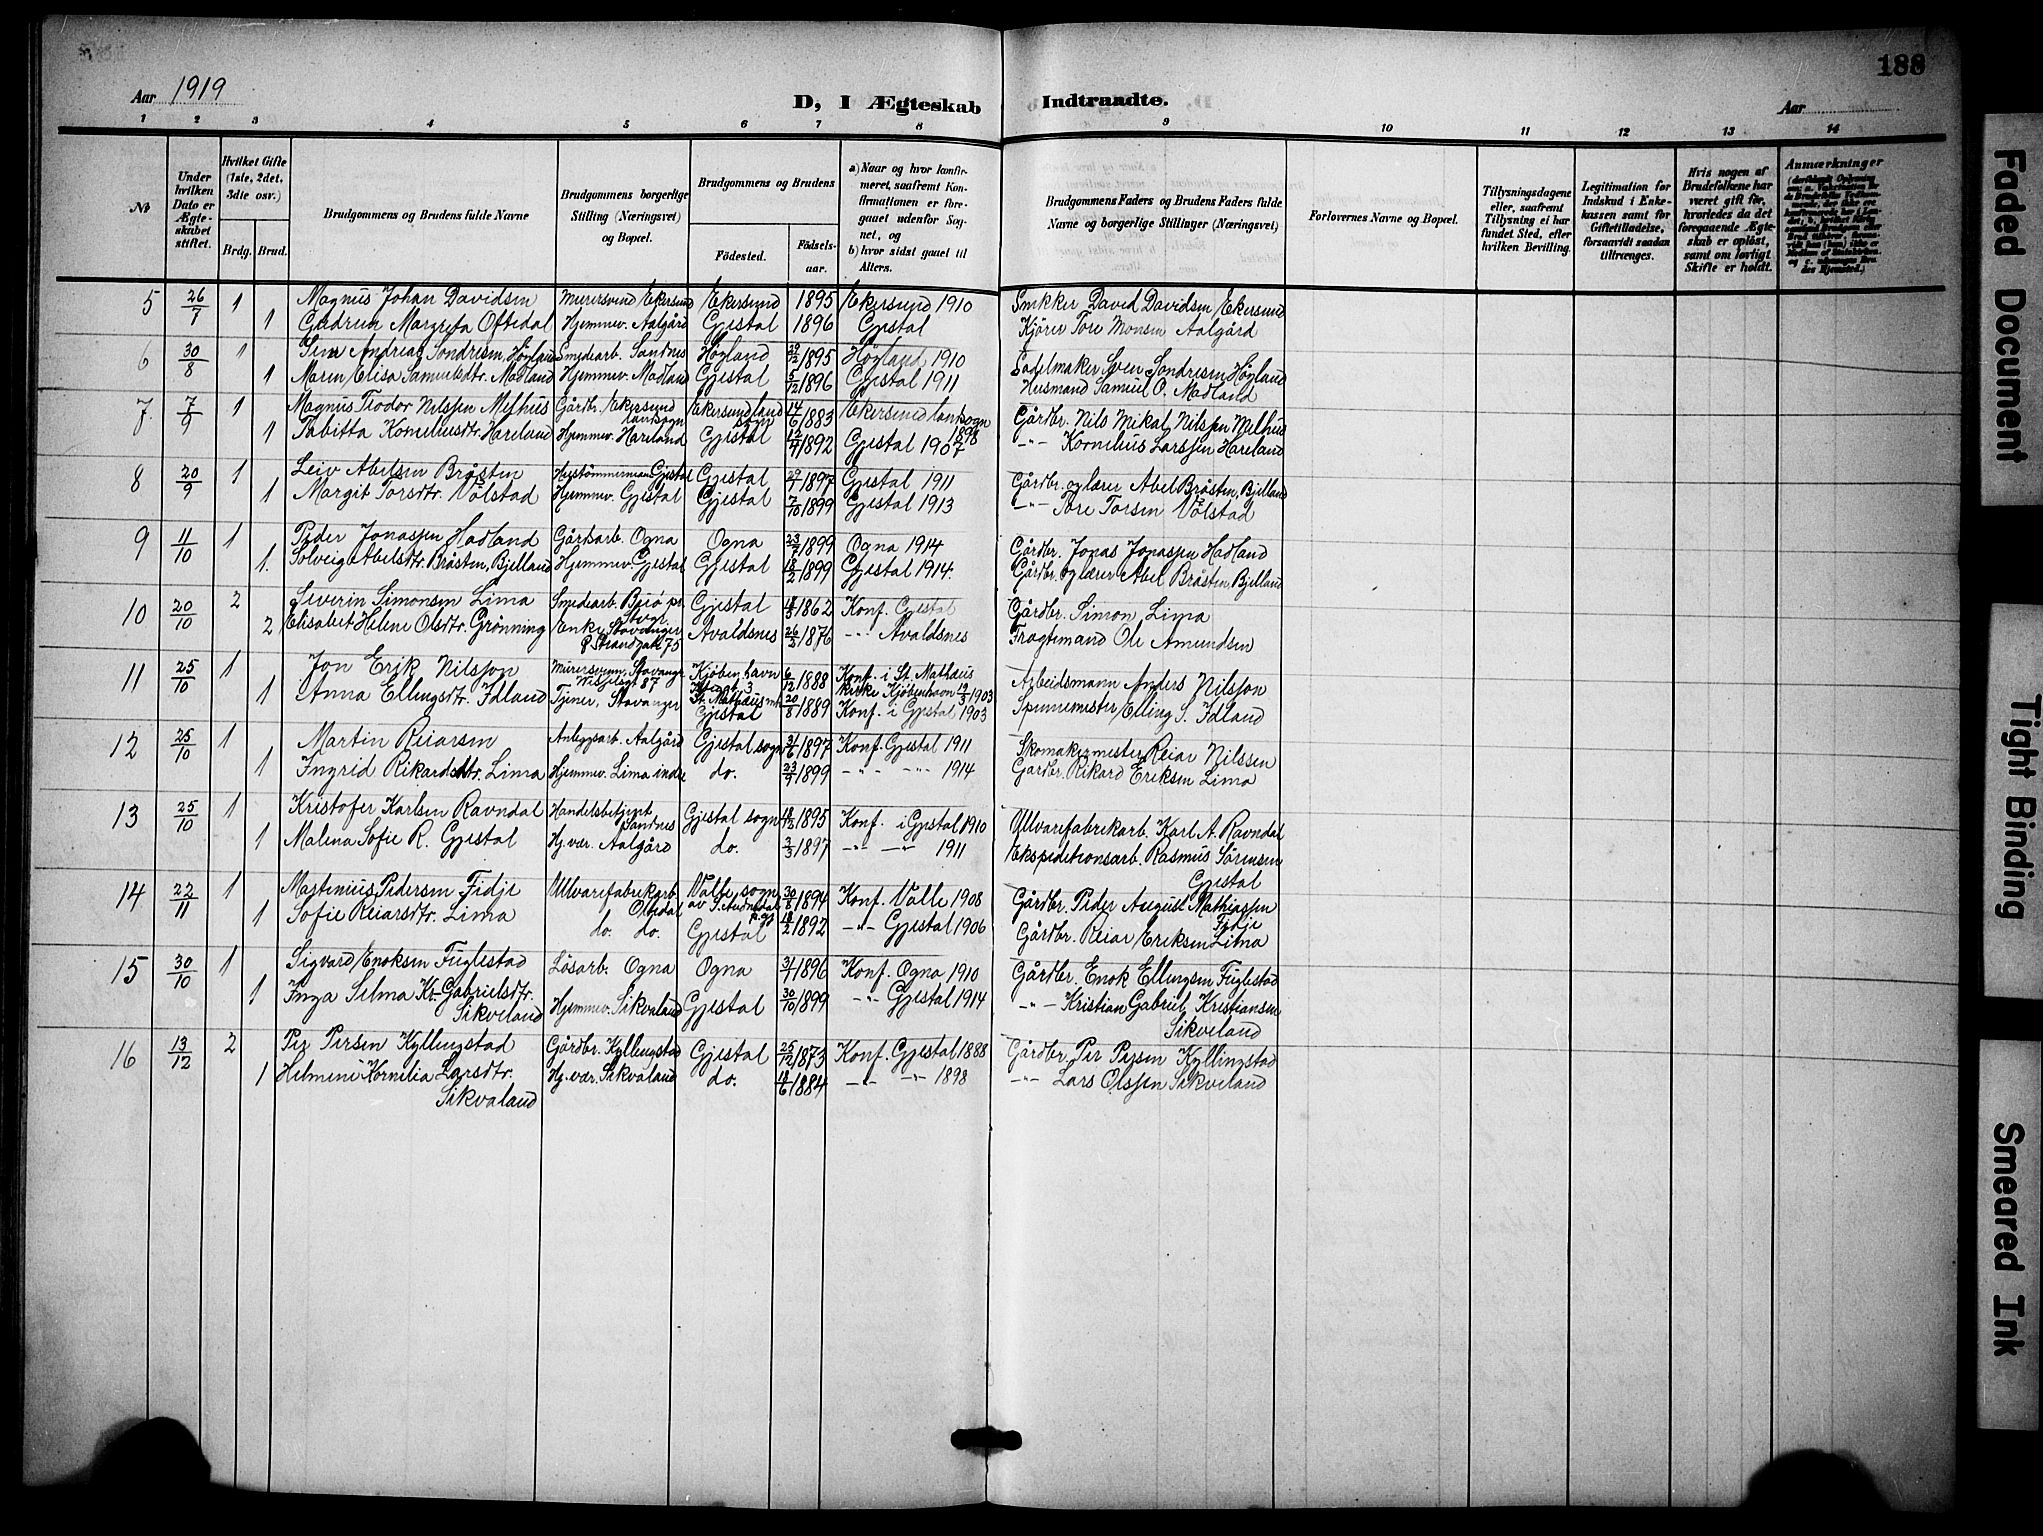 188
Aar 1919
D, I Ægteskab Indtraadte.
Aar
1 2 3 4 5 6 7 8 9 10 11 12 13 14
No
Under hvilken Dato er Ægteskabet stiftet.
Hvilket Gifte (1ste, 2det, 3die osv.)
Brdg. Brud.
Brudgommens og Brudens fulde Navne
Brudgommens borgerlige Stilling (Næringsvei) og Bopæl.
Brudgommens og Brudens
Födested. Födselsaar.
a) Naar og hvor konfirmeret, saafremt Konfirmationen er foregaaet udenfor Sognet, og
b) hvor sidst gaaet til Alters.
Brudgommens Faders og Brudens Faders fulde Navne og borgerlige Stillinger (Næringsvei)
Forlovernes Navne og Bopæl.
Tillysningsdagene eller, saafremt Tillysning ei har fundet Sted, efter hvilken Bevilling.
Legitimation for Indskud i Enkekassen samt for Giftetilladelse, forsaavidt saadan tiltrænges.
Hvis nogen af Brudefolkene har været gift før, hvorledes da det foregaaende Ægteskab er opløst, samt om lovligt Skifte er holdt.
Anmærkninger
5 26/7 1 Magnus Johan Davidsen Murersvend Ekersund Ekersund 1895 Ekersund 1910 Snekker David Davidsen Ekersund
1 Gudrun Margreta Oftedal Hjemmev. Aalgård Gjestal 1896 Gjestal Kjører Tore Monsen Aalgård
6 30/8 1 Sven Andreas Sondresen Høyland Smedearb. Sandnes Høyland 29/2 1895 Høyland 1910 Sadelmaker Sven Sondresen Høyland
1 Maren Elisa Samuelsdtr. Madland Hjemmev. Madland Gjestal 5/12 1896 Gjestal 1911 Husmand Samuel O. Madland
7 7/9 1 Magnus Teodor Nilssen Melhus Gårdbr. Ekersund landsogn Ekersund land sogn 14/6 1883 Ekersund landsogn 1898 Gårdbr. Nils Mikal Nilssen Melhus
1 Tabitta Korneliusdtr. Hareland Hjemmev. Hareland Gjestal 1892 Gjestal 1907 -"- Kornelius Larssen Hareland
8 20/9 1 Leiv Abelsen Bråsten Gjestal Gjestal 1897 Gjestal 1911 Gårdbr. og lærer Abel Bråsten, Bjelland
1 Margit Torsdtr. Vølstad Hjemmev. Gjestal Gjestal 7/10 1899 Gjestal 1913 -"- Tore Torsen Vølstad
9 11/10 1 Peder Jonassen Hadland Gårdsarb. Ogna Ogna 23/7 1899 Ogna 1914 Gårdbr. Jonas Jonassen Hadland
1. Solveig Abelsdtr. Bråsten, Bjelland Hjemmev. Gjestal Gjestal 18/2 1899 Gjestal 1914. Gårdbr. og lærer Abel Bråsten, Bjelland
10 20/10 2 Severin Simonsen Lima Smedearb. Buø pr. Stvgr. Gjestal 1862 Konf. Gjestal Gårdbr. Simon Lima
2 Elisabet Helene Olsdtr. Grønning Enke Stavanger Ø. Strandgate 75 Avaldsnes 26/2 1876 -"- Avaldsnes Fragtemand Ole Amundsen
11 25/10 1 Jon Erik Nilsson Murersvenn Stavanger 87 Kjøbenhavn St. Mathæus 6/12 1888 Konf. i St. Mathæus kirke Kjøbenhavn 1903 Arbeidsmann Anders Nilsson
1 Anna Ellingsdtr. Idland Tjener, Stavanger Gjestal 20/8 1889 Konf. i Gjestal 1903 Spinnemester Elling S. Idland
12 25/10 1 Martin Reiarsen Anleggsarb. Aalgård Gjestal sogn 3/6 1897 Konf. Gjestal 1911 Skomakermester Reiar Nilssen
1 Ingrid Rikardsdtr. Lima Hjemmev. Lima indre do. 23/9 1899 -"- -"- 1914 Gårdbr. Rikard Eriksen Lima
13 25/10 1 Kristofer Karlsen Ravndal Handelsbetjent Sandnes Gjestal sogn 18/12 1895 Konf. i Gjestal 1910 Ullvarefabrikarb. Karl A. Ravndal
1 Malena Sofie R. Gjestal Hj.vær. Aalgård do. 2/3 1897 -"- -"- 1911 Ekspeditionsarb. Rasmus Sørensen Gjestal
14 22/11 1 Matenius Pedersen Fidje Ullvarefabrikarb. Oltedal Valle sogn av S. Audnedal p.gj. 30/8 1894 Konf. Valle 1908 Gårdbr. Peder August Mathiassen Fidje
1 Sofie Reiarsdtr. Lima do. do. Gjestal 18/2 1892 -"- Gjestal 1906 Gårdbr. Reiar Eriksen Lima
15 30/10 1 Sigvard Enoksen Fuglestad Løsarb. Ogna Ogna 1896 Konf. Ogna 1910 Gårdbr. Enok Ellingsen Fuglestad
1 Inga Selma Kr. Gabrielsdtr. Sikveland Hjemmev. Sikvaland Gjestal 30/10 1899 -"- Gjestal 1914 -"- Kristian Gabriel Kristiansen Sikveland
16 13/12 2 Per Persen Kyllingstad Gårdbr. Kyllingstad Gjestal 25/12 1873 Konf. Gjestal 1888 Gårdbr. Per Persen Kyllingstad
1 Helmine Kornelia Larsdtr. Sikvaland Hj.vær. Sikvaland do. 18/6 1884 -"- -"- 1898 -"- Lars Olsen Sikveland
Faded Document
Tight Binding
Smeared Ink